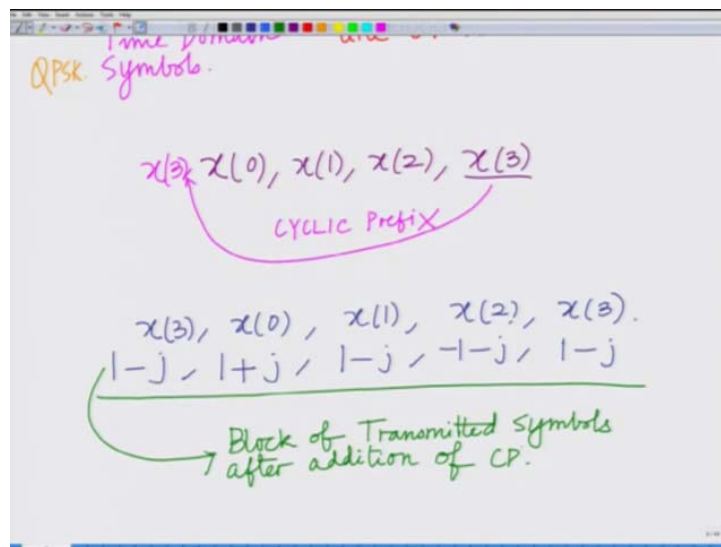 Time Domain
QPSK. Symbols.
x(3), x(0), x(1), x(2), x(3)
CYCLIC Prefix
x(3), x(0), x(1), x(2), x(3).
1-j, 1+j, 1-j, -1-j, 1-j
Block of Transmitted Symbols
after addition of CP.